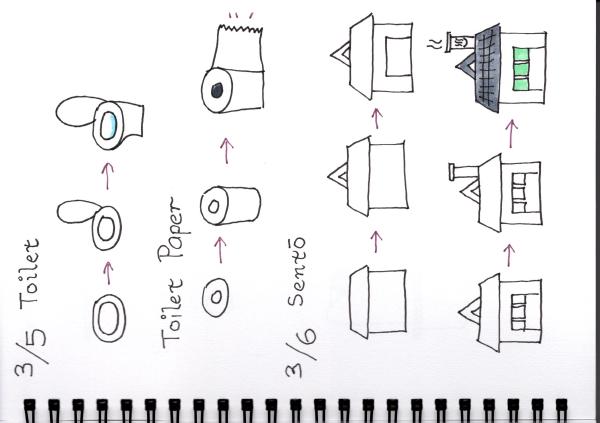 3/5 Toilet
Toilet Paper
3/6 Sentō